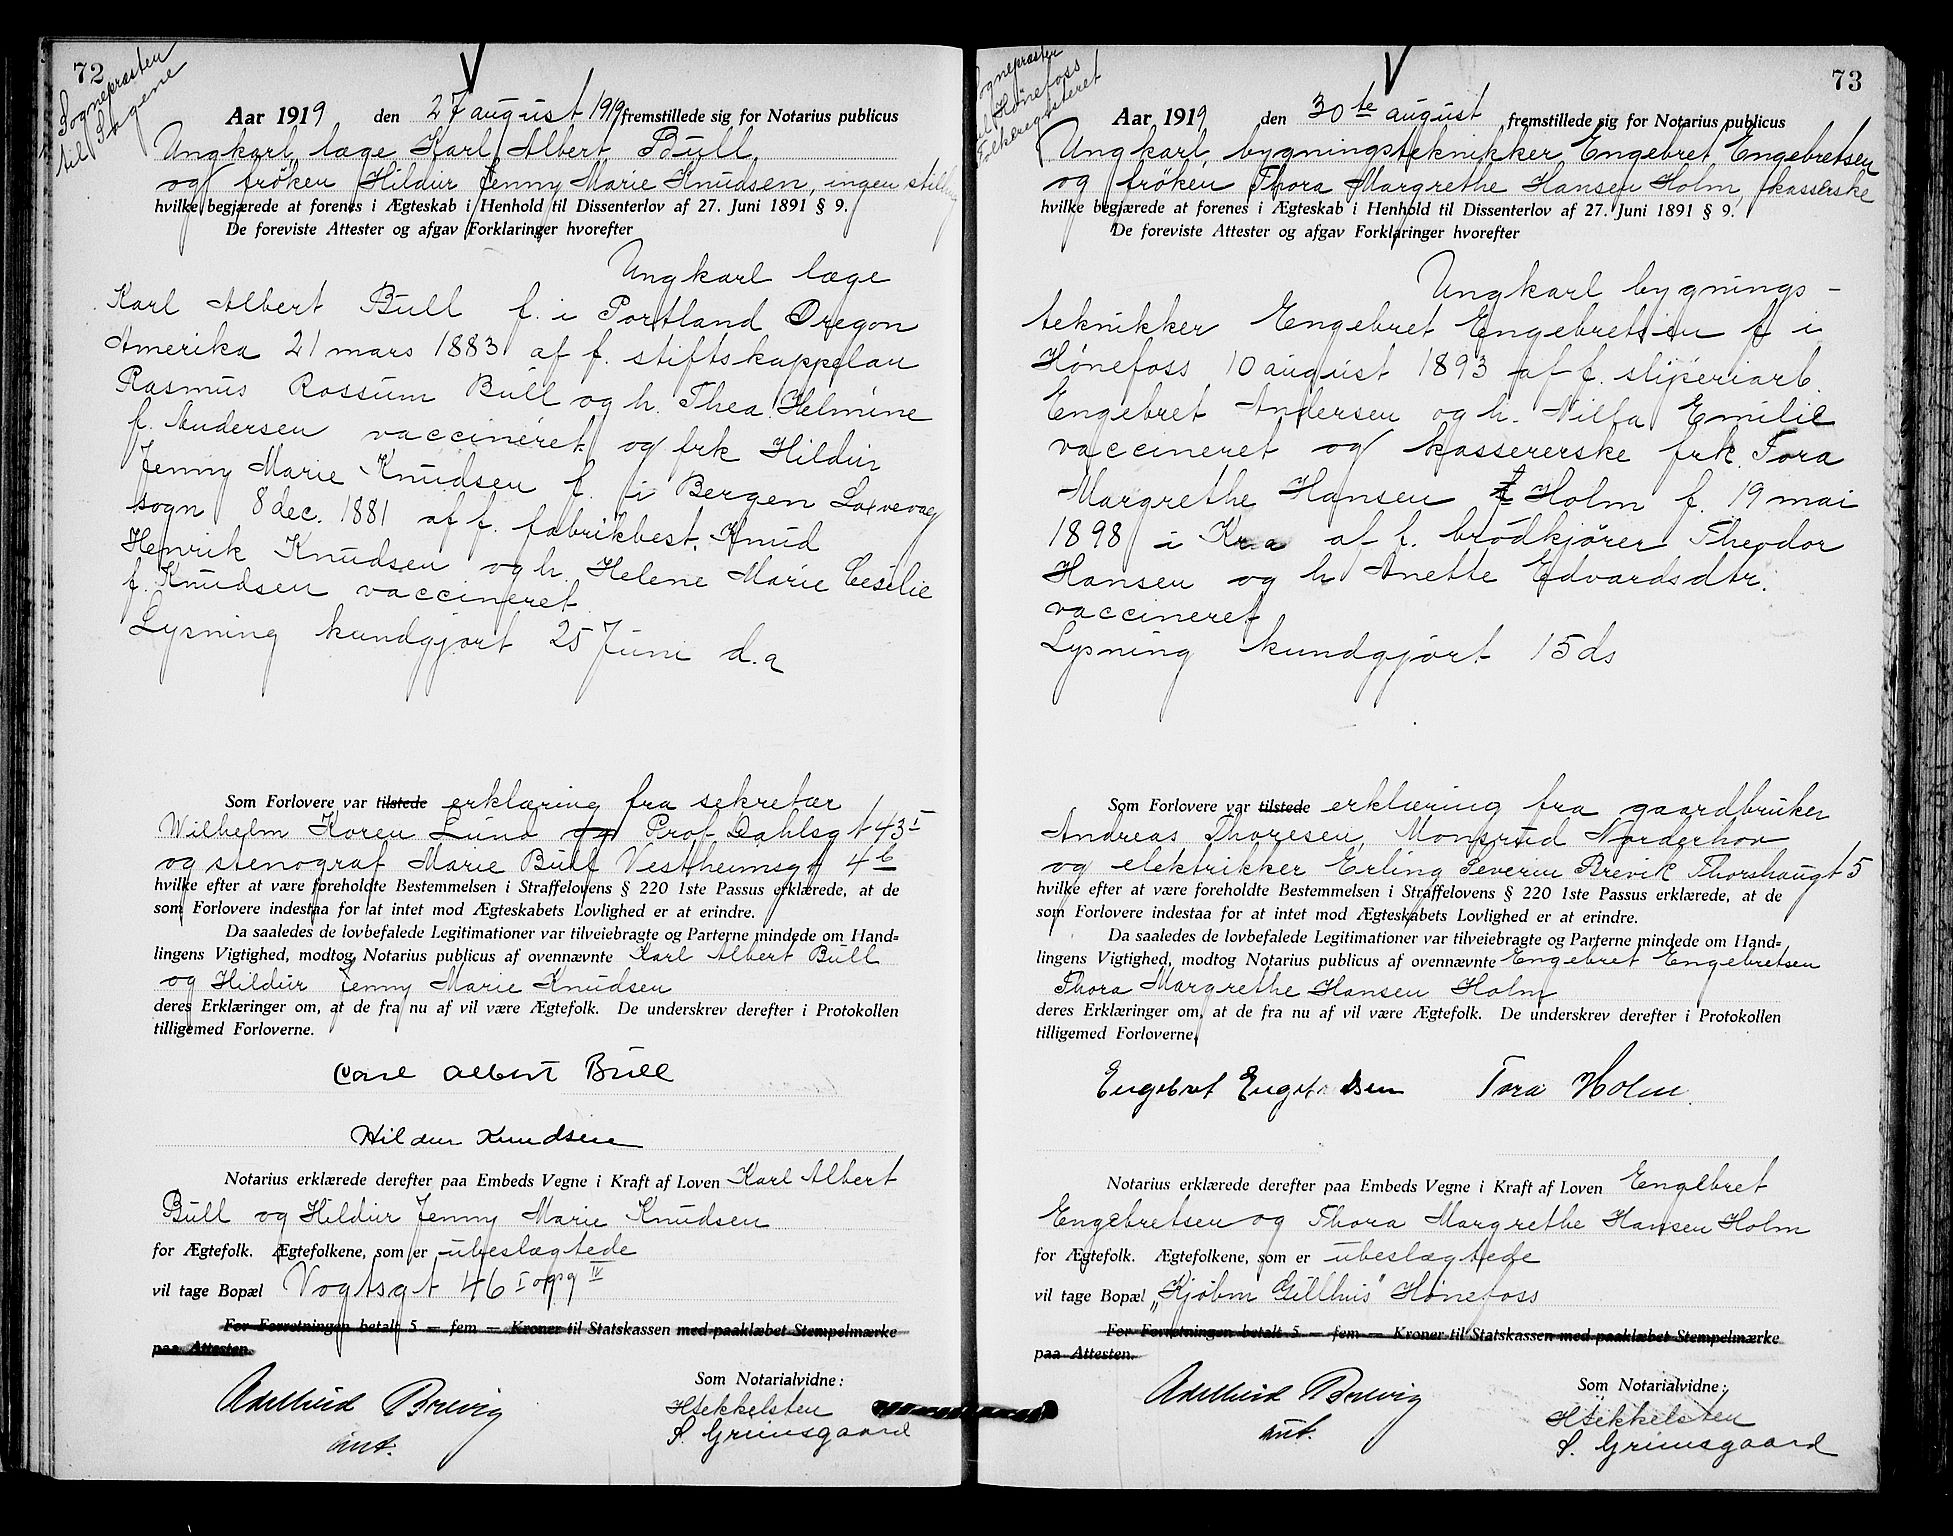 72
Sognepræsten
til Sagene
Aar 1919 den 27 august 1919 fremstillede sig for Notarius publicus
Ungkarl, læge Karl Albert Bull
og frøken Hildur Jenny Marie Knudsen, ingen stilling
hvilke begjærede at forenes i Ægteskab i Henhold til Dissenterlov af 27. Juni 1891 § 9.
De foreviste Attester og afgav Forklaringer hvorefter
Ungkarl læge
Karl Albert Bull f. i Portland Oregon
Amerika 21 mars 1883 af f. stiftskappelan
Rasmus Rossum Bull og h. Thea Helmine
f. Andersen vaccineret og frk Hildur
Jenny Marie Knudsen f. i Bergen Laxevaag
sogn 8 dec. 1881 af f. fabrikbest. Knud
Henrik Knudsen og h. Helene Marie Cesilie
f. Knudsen vaccineret.
Lysning kundgjort 25 Juni d.a
Som Forlovere var tilstede erklæring fra sekretær
Wilhelm Koren Lund og Prof. Dahlsgt 43 I
og stenograf Marie Bull Vestheimsgt 4 b
hvilke efter at være foreholdte Bestemmelsen i Straffelovens § 220 1ste Passus erklærede, at de
som Forlovere indestaa for at intet mod Ægteskabets Lovlighed er at erindre.
Da saaledes de lovbefalede Legitimationer var tilveiebragte og Parterne mindede om Hand=
lingens Vigtighed, modtog Notarius publicus af ovennævnte Karl Albert Bull
og Hildur Jenny Marie Knudsen
deres Erklæringer om, at de fra nu af vil være Ægtefolk. De underskrev derefter i Protokollen
tilligemed Forloverne.
Carl Albert Bull
Hildur Knudsen
Notarius erklærede derefter paa Embeds Vegne i Kraft af Loven Karl Albert
Bull og Hildur Jenny Marie Knudsen
for Ægtefolk. Ægtefolkene, som er ubeslægtede
vil tage Bopæl Vogtsgt 46 I opg IV
For Forretningen betalt 5 — fem — Kroner til Statskassen med paaklæbet Stempelmærke
paa Attesten.
Adelheid Brevig
aut.
Som Notarialvidne:
HStekkelsten
S. Grimsgaard
73
Sognepræsten
til Hønefoss
Folkeregisteret
Aar 1919 den 30te august fremstillede sig for Notarius publicus
Ungkarl, bygningsteknikker Engebret Engebretsen
og frøken Thora Margrethe Hansen Holm, kasserske
hvilke begjærede at forenes i Ægteskab i Henhold til Dissenterlov af 27. Juni 1891 § 9.
De foreviste Attester og afgav Forklaringer hvorefter
Ungkarl bygnings-
teknikker Engebret Engebretsen f i
Hønefoss 10 august 1893 af f. sliperiarb.
Engebret Andersen og h. Nilla Emilie
vaccineret og kassererske frk. Tora
Margrethe Hansen Holm f. 19 mai
1898 i Kra af f. brødkjører Theodor
Hansen og h Anette Edvardsdtr.
vaccineret
Lysning kundgjort 15 ds
Som Forlovere var tilstede erklæring fra gaardbruker
Andreas Thoresen, Monsrud Norderhov
og elektrikker Erling Severin Brevik Thorshaugt 5
hvilke efter at være foreholdte Bestemmelsen i Straffelovens § 220 1ste Passus erklærede, at de
som Forlovere indestaa for at intet mod Ægteskabets Lovlighed er at erindre.
Da saaledes de lovbefalede Legitimationer var tilveiebragte og Parterne mindede om Hand=
lingens Vigtighed, modtog Notarius publicus af ovennævnte Engebret Engebretsen
Thora Margrethe Hansen Holm
deres Erklæringer om, at de fra nu af vil være Ægtefolk. De underskrev derefter i Protokollen
tilligemed Forloverne.
Engebret Engebretsen Tora Holm.
Notarius erklærede derefter paa Embeds Vegne i Kraft af Loven Engebret
Engebretsen og Thora Margrethe Hansen Holm
for Ægtefolk. Ægtefolkene, som er ubeslægtede
vil tage Bopæl „Kjøbm Gillhus" Hønefoss
For Forretningen betalt 5 — fem — Kroner til Statskassen med paaklæbet Stempelmærke
paa Attesten.
Adelheid Brevig
aut.
Som Notarialvidne:
HStekkelsten
S. Grimsgaard